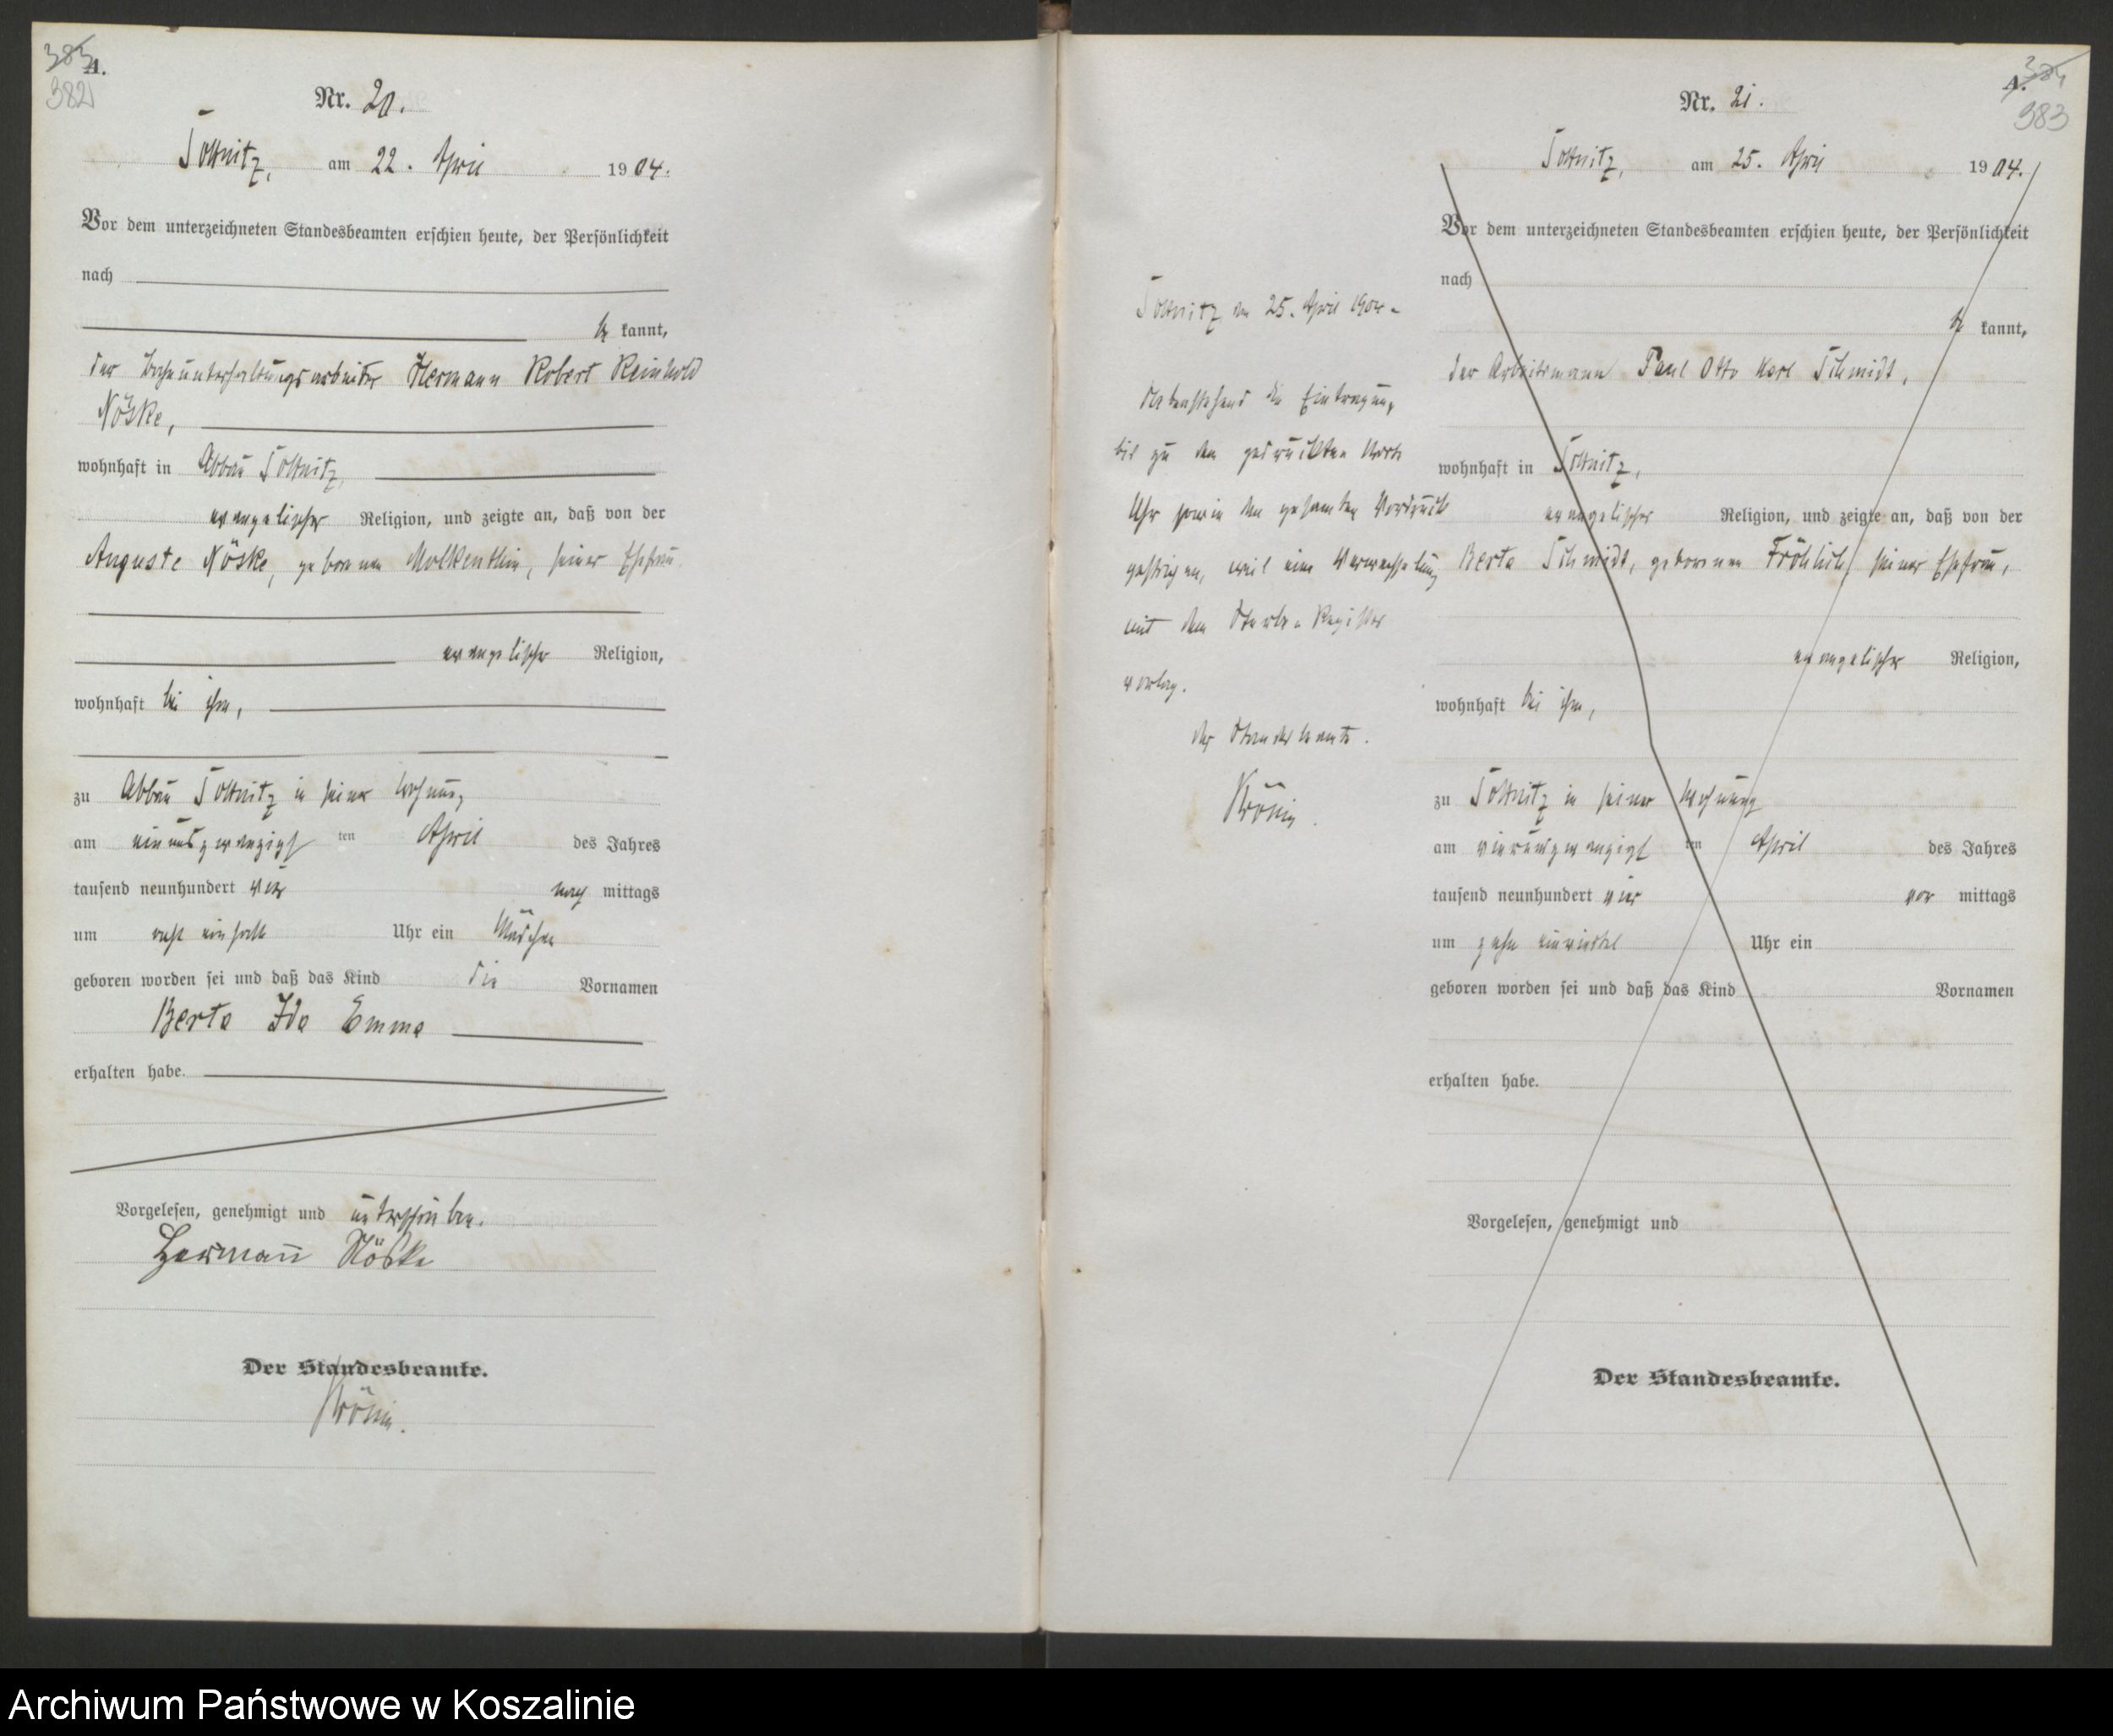 383
A.
382
Nr. 20.
Soltnitz, am 22. April 1904.
Vor dem unterzeichneten Standesbeamten erschien heute, der Persönlichkeit
nach
be kannt,
der Bahnunterhaltungsarbeiter Hermann Robert Reinhold
Nöske,
wohnhaft in Abbau Soltnitz,
evangelischer Religion, und zeigte an, daß von der
Auguste Nöske, geborenen Molkenthin, seiner Ehefrau
evangelischer Religion,
wohnhaft bei ihm,
zu Abbau Soltnitz in seiner Wohnung
am einundzwanzigs ten April des Jahres
tausend neunhundert vier nach mittags
um acht einhalb Uhr ein Mädchen
geboren worden sei und daß das Kind die Vornamen
Berta Ida Emma
erhalten habe.
Vorgelesen, genehmigt und unterschrieben.
Hermann Nöske
Der Standesbeamte.
Krönin.
A.
383
Nr. 21.
Soltnitz, am 25. April 1904.
Vor dem unterzeichneten Standesbeamten erschien heute, der Persönlichkeit
nach
be kannt,
der Arbeitsmann Paul Otto Karl Schmidt,
wohnhaft in Soltnitz,
evangelischer Religion, und zeigte an, daß von der
Berta Schmidt, geborenen Fröhlich, seiner Ehefrau,
evangelischer Religion,
wohnhaft bei ihm,
zu Soltnitz in seiner Wohnung
am vierundzwanzigs ten April des Jahres
tausend neunhundert vier vor mittags
um zehn einviertel Uhr ein
geboren worden sei und daß das Kind Vornamen
erhalten habe.
Vorgelesen, genehmigt und
Der Standesbeamte.
Soltnitz, den 25. April 1904.
Nebenstehend die Eintragung
bis zu dem gedruckten Worte
Uhr sowie den gesamten Vordruck
gestrichen, weil eine Verwechselung
mit dem Sterbe-Register
vorlag.
Der Standesbeamte.
Krönin.
Archiwum Państwowe w Koszalinie